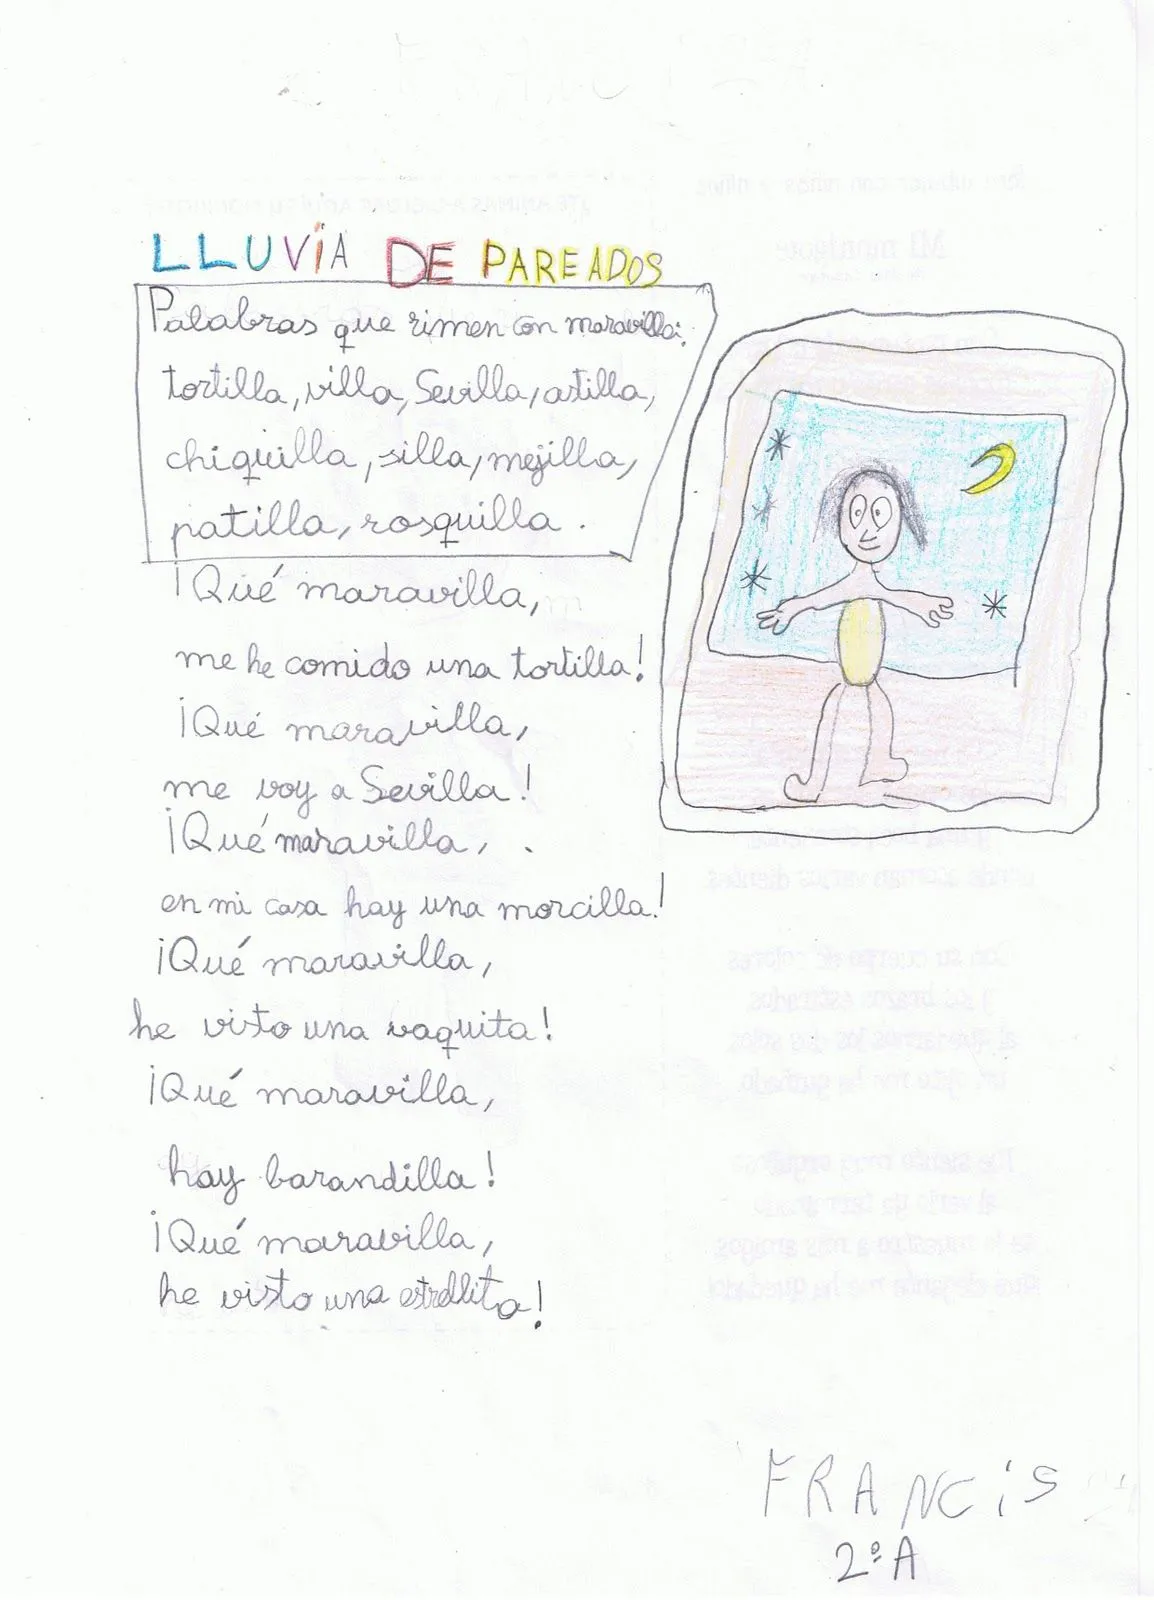 LLUVIA DE PAREADOS
Palabras que rimen con maravilla:
tortilla, villa, Sevilla, astilla,
chiquilla, silla, mejilla,
patilla, rosquilla.
¡Qué maravilla,
me he comido una tortilla!
¡Qué maravilla,
me voy a Sevilla!
¡Qué maravilla,
en mi casa hay una morcilla!
¡Qué maravilla,
he visto una vaquita!
¡Qué maravilla,
hay barandilla!
¡Qué maravilla,
he visto una estrellita!
FRANCIS
2º A